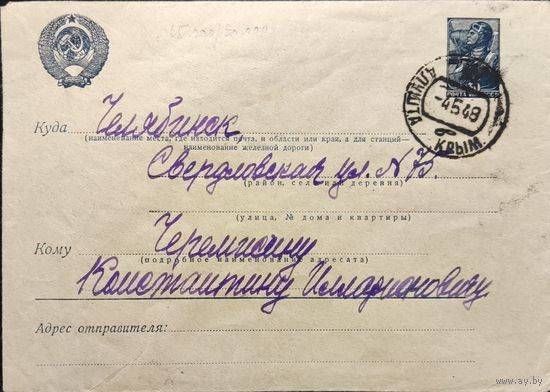 ПОЧТА
АЛУШТА
-4 5 49
КРЫМ.
Куда Челябинск
(наименование места, где находится почта, в области или края, а для станций—
наименование железной дороги)
Свердловская ул. №
(район, село или деревня)
(улица, № дома и квартиры)
Кому
(подробное наименование адресата)
Константину Илларионовичу
Адрес отправителя:
www.ay.by